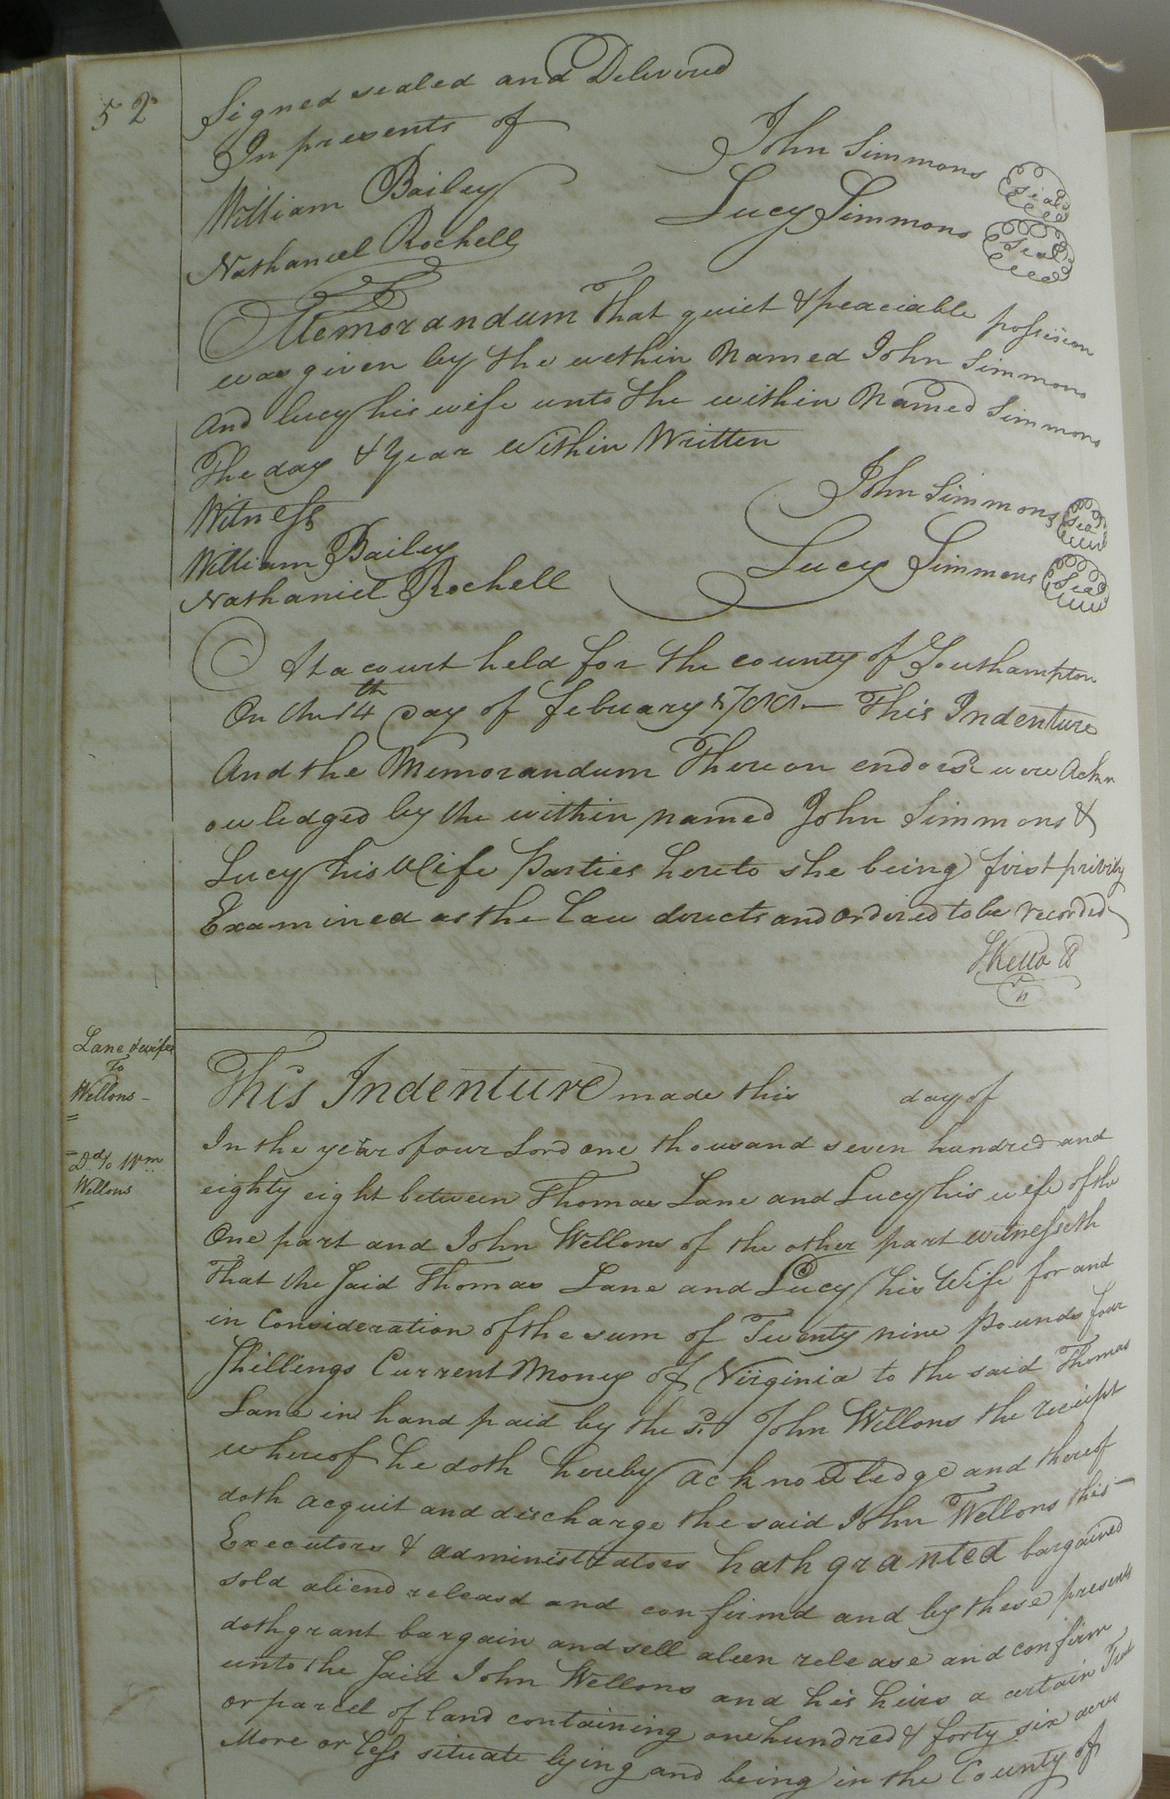 52
Signed sealed and Delivered
In presents of
John Simmons Seal
William Bailey
Lucy Simmons Seal
Nathaniel Rochell
Memorandum That quiet & peaciable possesion
was given by the within Named John Simmons
And lucy his wife unto the within Named Simmons
The day & Year within Written
Witness
John Simmons Seal
William Bailey
Lucy Simmons Seal
Nathaniel Rochell
At a court held for the county of Southampton
On the 14th Day of febuary This Indenture
And the Memorandum Thereon endorsd were Ackn
owledged by the within named John Simmons &
Lucy his Wife Parties hereto she being first privily
Examined as the Law directs and ordered to be recorded
Lane & wife
To
Wellons
Dd to Wm
Wellons
This Indenture made this day of
In the year of our Lord one thousand seven hundred and
eighty eight between Thomas Lane and Lucy his wife of the
One part and John Wellons of the other part witnesseth
That the said Thomas Lane and Lucy his Wife for and
in Consideration of the sum of Twenty nine Pounds four
shillings Current Money of Virginia to the said Thomas
Lane in hand paid by the sd John Wellons the receipt
whereof he doth hereby acknowledge and thereof
doth acquit and discharge the said John Wellons this
Executors & administrators hath granted bargained
sold aliend releasd and confirmd and by these presents
doth grant bargain and sell alien release and confirm
unto the said John Wellons and his heirs a certain
or parcel of land containing one hundred & forty six acres
More or less situate lying and being in the County of